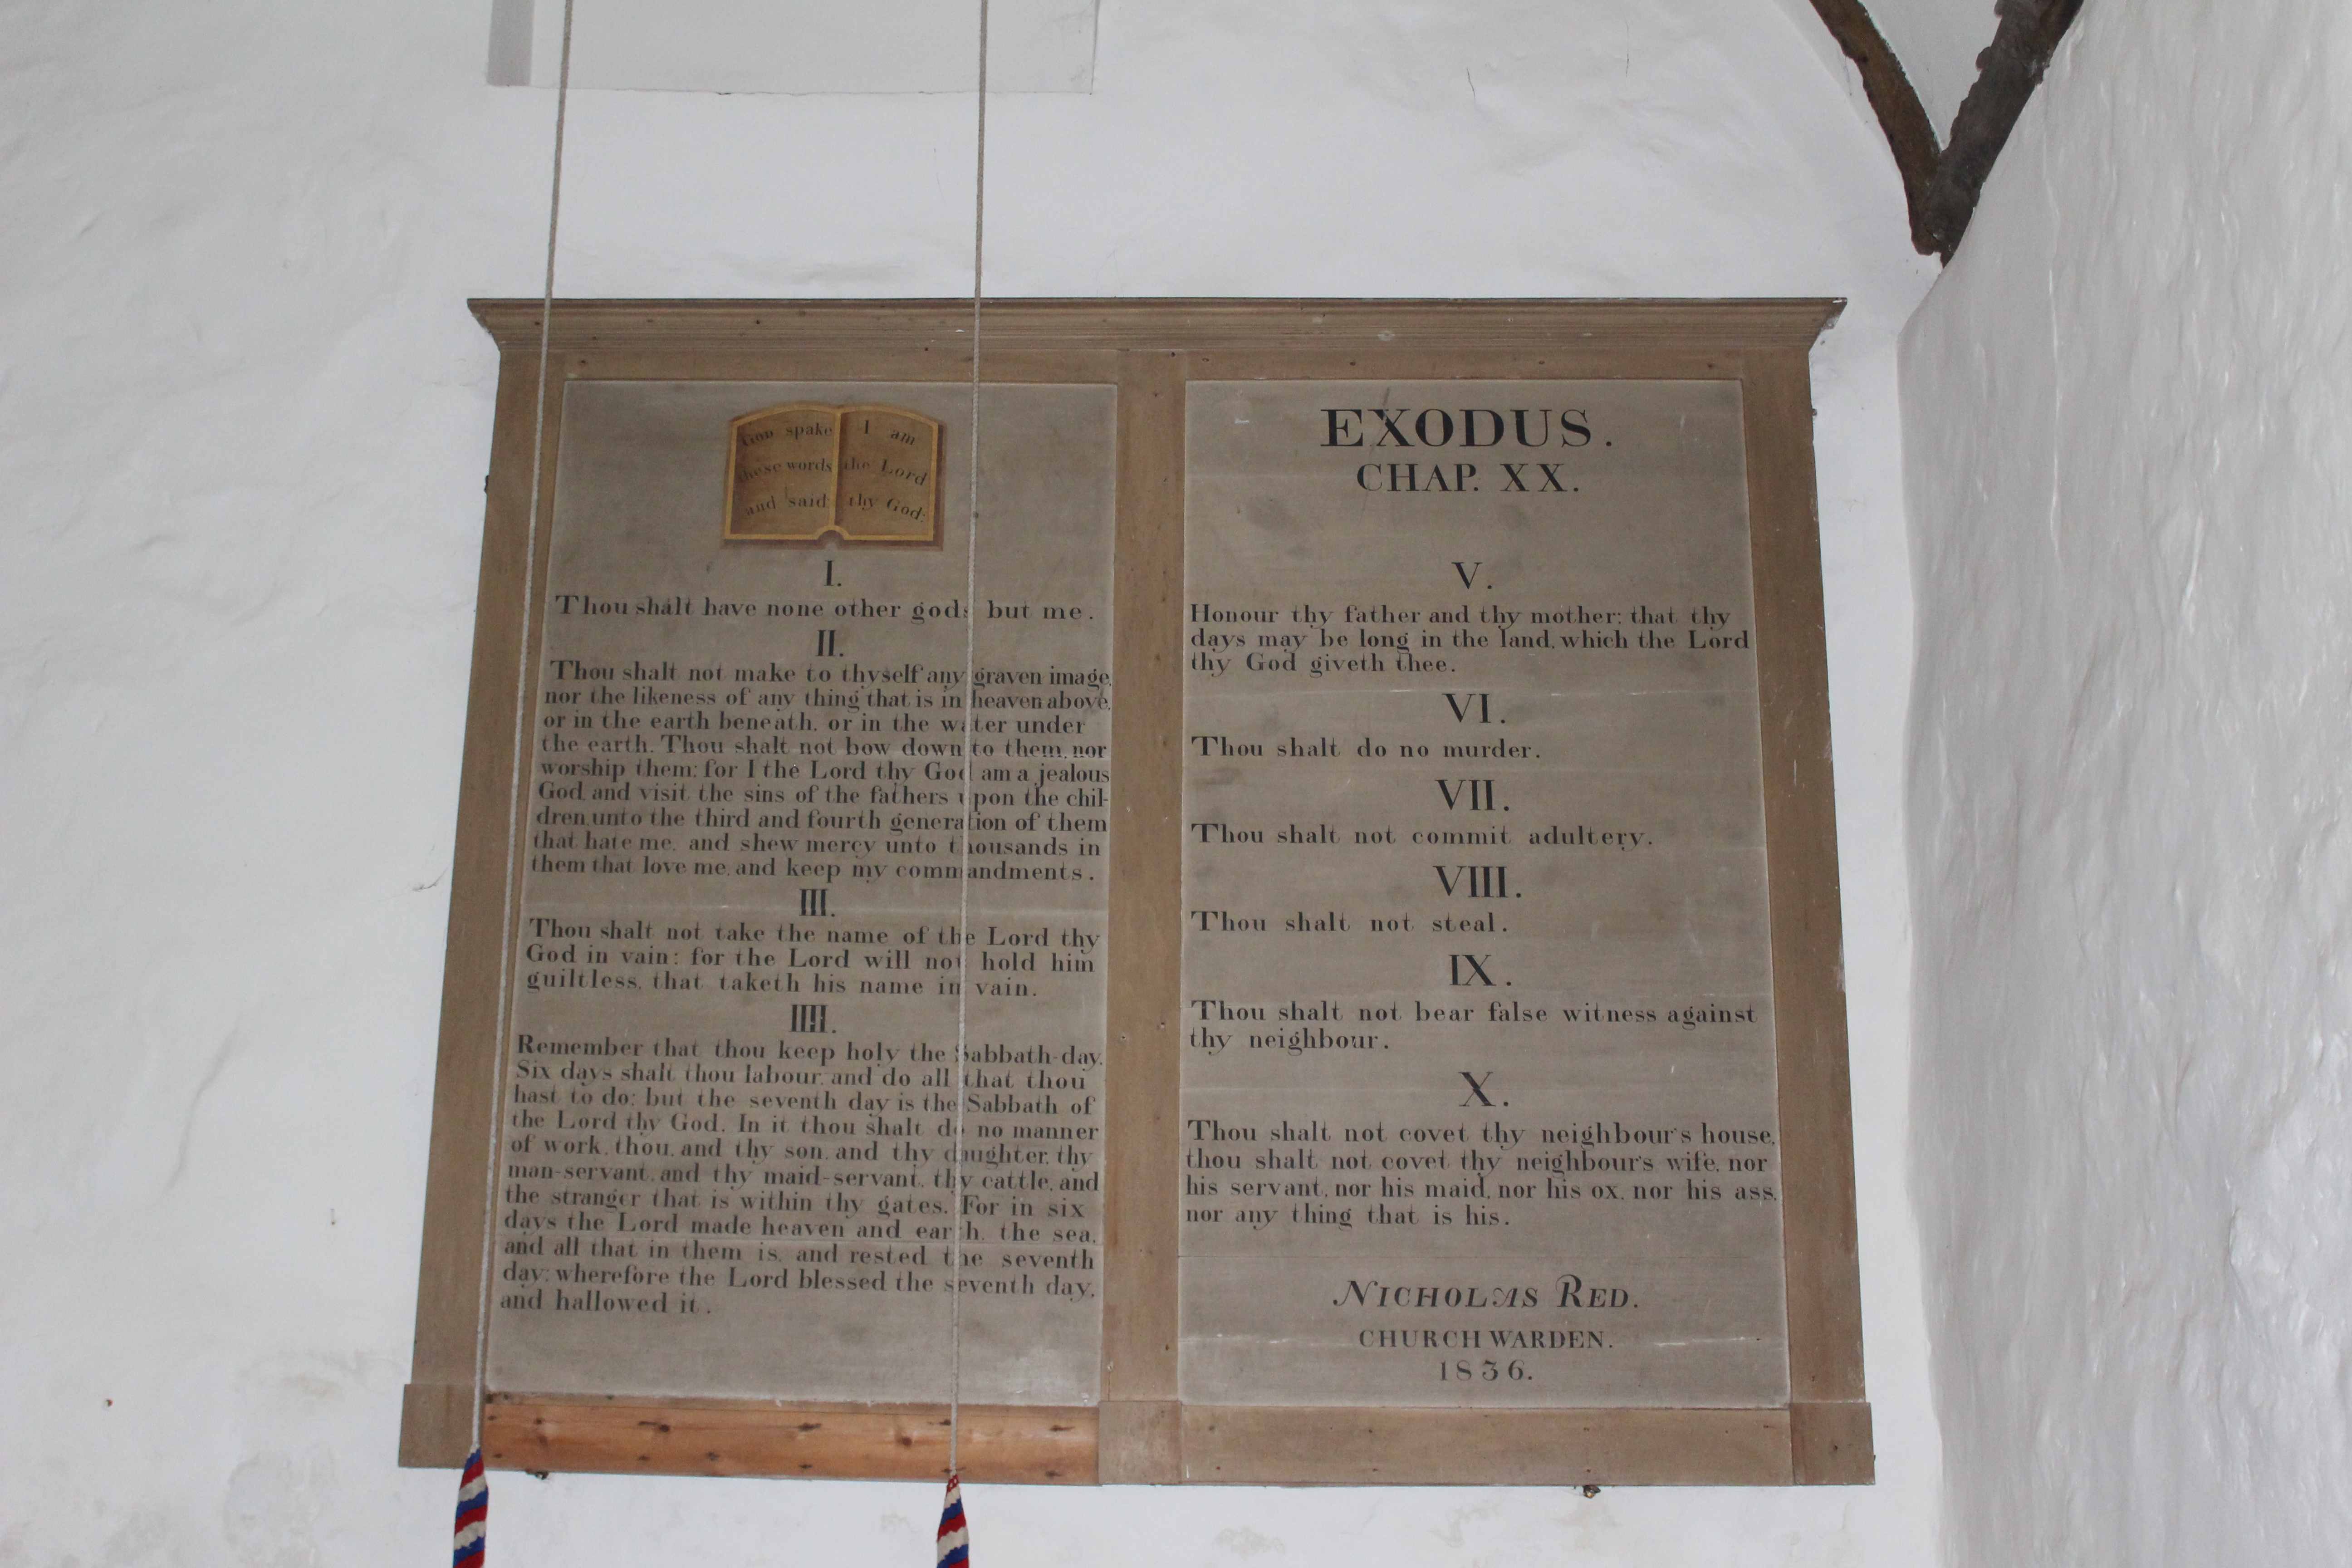 God spake
these words
and said:
I am
the Lord
thy God:
I.
Thou shalt have none other gods but me.
II.
Thou shalt not make to thyself any graven image,
nor the likeness of any thing that is in heaven above,
or in the earth beneath, or in the water under
the earth. Thou shalt not bow down to them, nor
worship them: for I the Lord thy God am a jealous
God, and visit the sins of the fathers upon the chil-
dren, unto the third and fourth generation of them
that hate me, and shew mercy unto thousands in
them that love me, and keep my commandments.
III.
Thou shalt not take the name of the Lord thy
God in vain: for the Lord will not hold him
guiltless, that taketh his name in vain.
IIII.
Remember that thou keep holy the Sabbath-day.
Six days shalt thou labour, and do all that thou
hast to do; but the seventh day is the Sabbath of
the Lord thy God. In it thou shalt do no manner
of work, thou, and thy son, and thy daughter, thy
man-servant, and thy maid-servant, thy cattle, and
the stranger that is within thy gates. For in six
days the Lord made heaven and earth, the sea,
and all that in them is, and rested the seventh
day; wherefore the Lord blessed the seventh day,
and hallowed it.
EXODUS.
CHAP. XX.
V.
Honour thy father and thy mother; that thy
days may be long in the land, which the Lord
thy God giveth thee.
VI.
Thou shalt do no murder.
VII.
Thou shalt not commit adultery.
VIII.
Thou shalt not steal.
IX.
Thou shalt not bear false witness against
thy neighbour.
X.
Thou shalt not covet thy neighbour's house,
thou shalt not covet thy neighbour's wife, nor
his servant, nor his maid, nor his ox, nor his ass,
nor any thing that is his.
NICHOLAS RED.
CHURCH WARDEN.
1836.